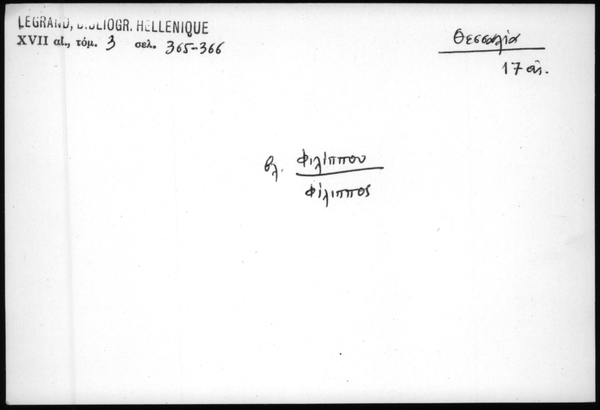 LEGRAND, BIBLIOGR. HELLENIQUE
XVII αἰ., τόμ. 3 σελ. 365-366
Θεσσαλία
17 αἰ.
βλ. Φιλίππου
Φίλιππος